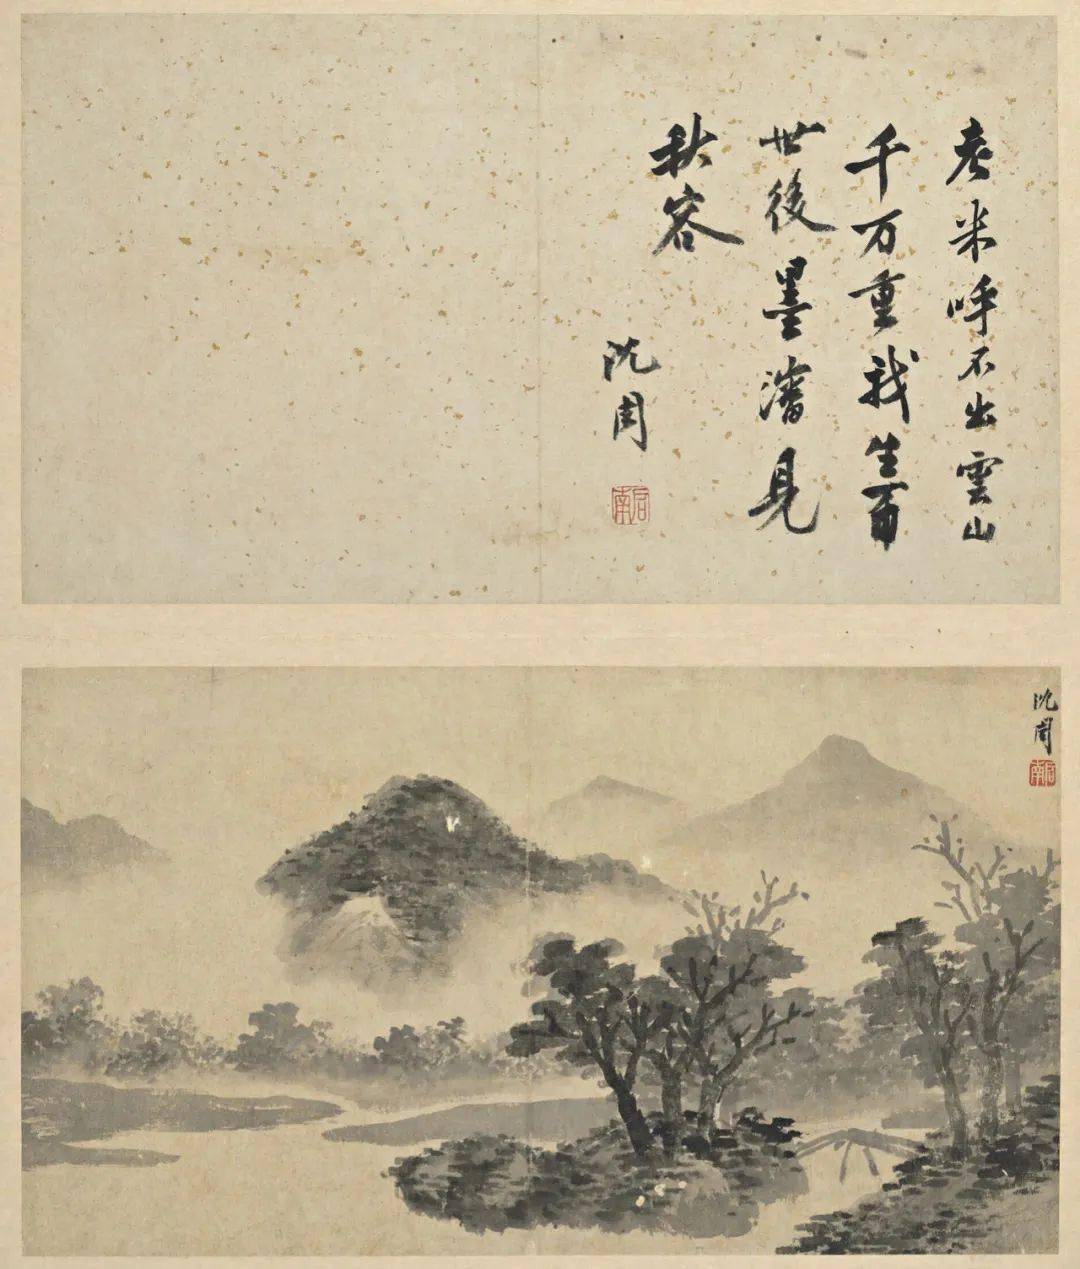 老米呼不出雲山
千万重我生百
世後墨瀋見
秋容
沈周
启南
沈周
启南